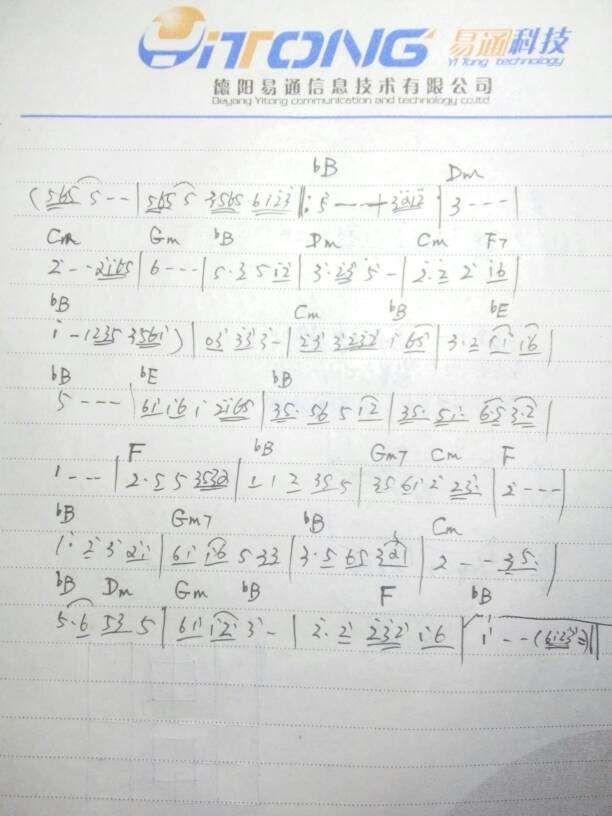 YiTONG 易通科技
Yi Tong technology
德阳易通信息技术有限公司
Deyang Yitong communication and technology co.,ltd
bB Dm
(565 5 - - | 565 5 3565 6123 ||: 5 - - - + 3212 | 3 - - - |
Cm Gm bB Dm Cm F7
2 - - 2165 | 6 - - - | 5·3 5 12 | 3·23 5 - | 2·2 2 16 |
bB Cm bB bE
1 - 1235 3561 ) | 03 33 3 - | 23 3232 1 65 | 3·2 11 16 |
bB bE bB
5 - - - | 61 16 1 2165 | 35· 56 5 12 | 35· 51· 6·5 3·2 |
F bB Gm7 Cm F
1 - - - | 2·5 5 3532 | 1 1 2 35 5 | 35 61 2 23· | 2 - - - |
bB Gm7 bB Cm
1· 2 3 21 | 61 16 5 33 | 3·5 65 321 | 2 - - 35· |
bB Dm Gm bB F bB
5·6 53 5 | 61 12 3 - | 2·2 232 16 | 1 - - (6123 :||